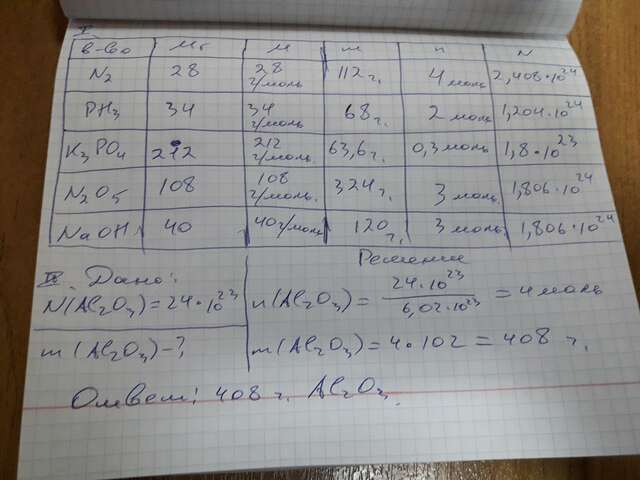 I.
в-во Mr M m n N
N₂ 28 28 г/моль 112 г. 4 моль 2,408·10²⁴
PH₃ 34 34 г/моль 68 г. 2 моль 1,204·10²⁴
K₃PO₄ 212 212 г/моль 63,6 г. 0,3 моль 1,8·10²³
N₂O₅ 108 108 г/моль. 324 г. 3 моль 1,806·10²⁴
NaOH 40 40 г/моль 120 г. 3 моль 1,806·10²⁴
II. Дано:
N(Al₂O₃) = 24·10²³
m(Al₂O₃) - ?
Решение
n(Al₂O₃) = 24·10²³ / 6,02·10²³ = 4 моль
m(Al₂O₃) = 4·102 = 408 г.
Ответ: 408 г. Al₂O₃.